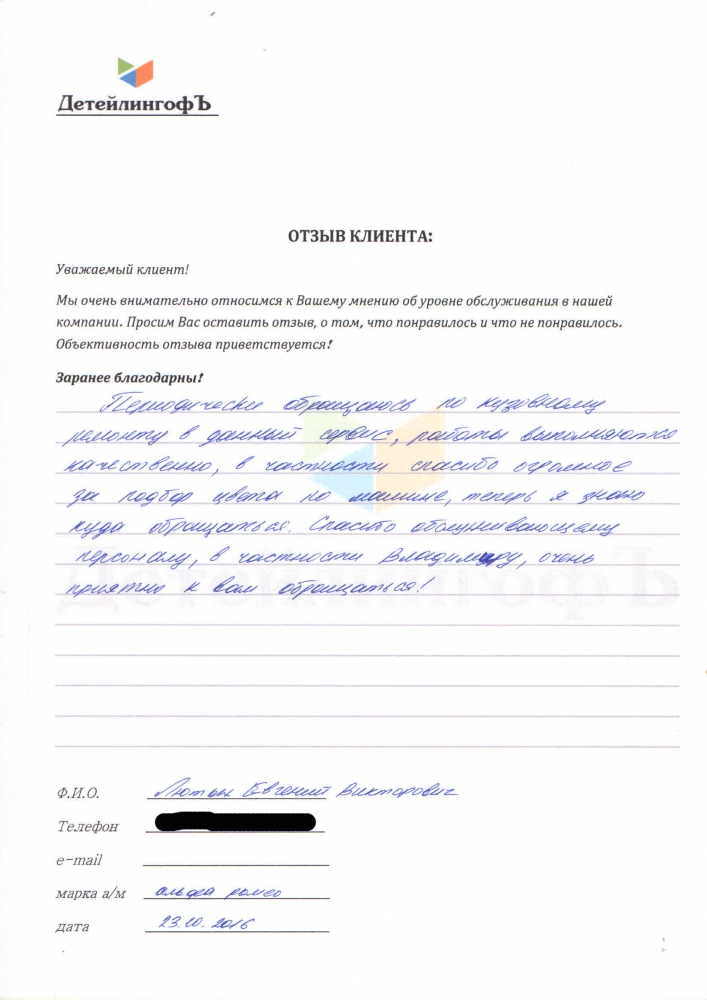 ДетейлингофЪ
ОТЗЫВ КЛИЕНТА:
Уважаемый клиент!
Мы очень внимательно относимся к Вашему мнению об уровне обслуживания в нашей
компании. Просим Вас оставить отзыв, о том, что понравилось и что не понравилось.
Объективность отзыва приветствуется!
Заранее благодарны!
Периодически обращаюсь по кузовному
ремонту в данный сервис, работы выполняются
качественно, в частности спасибо огромное
за подбор цвета по машине, теперь я знаю
куда обращаться. Спасибо обслуживающему
персоналу, в частности Владимиру, очень
приятно к вам обращаться!
Ф.И.О. Евгений Викторович
Телефон
e-mail
марка а/м альфа ромео
дата 23.10.2016